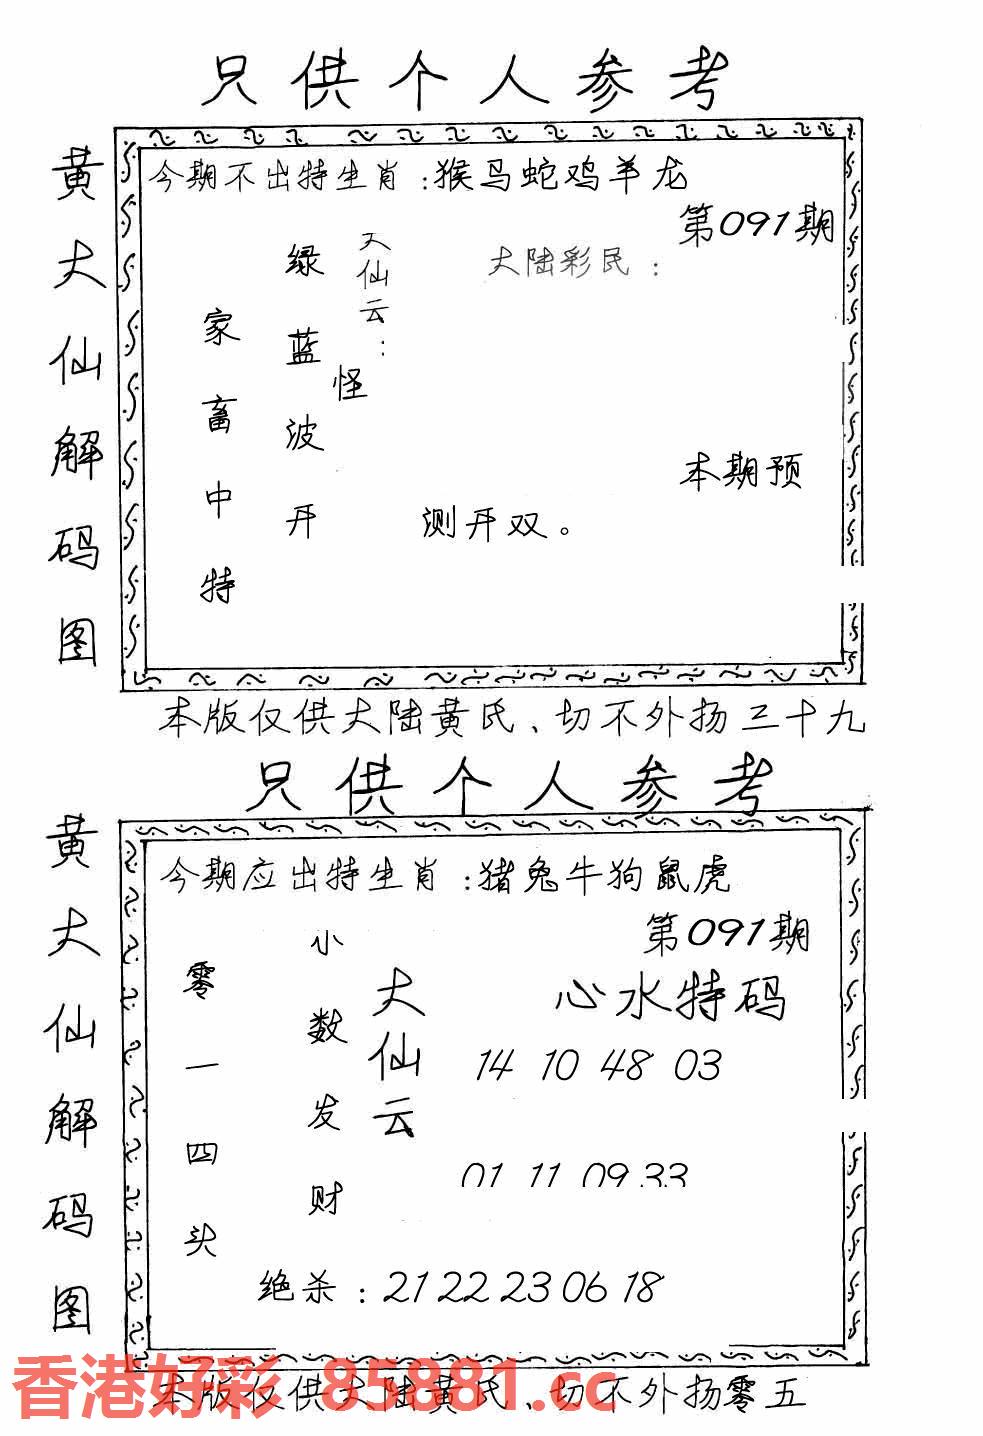 只供个人参考
黄大仙解码图
今期不出特生肖:猴马蛇鸡羊龙
第091期
大陆彩民:
天仙云:
怪
绿蓝波开
家畜中特
本期预
测开双。
本版仅供大陆黄氏、切不外扬三十九
只供个人参考
黄大仙解码图
今期应出特生肖:猪兔牛狗鼠虎
第091期
心水特码
大仙云
小数发财
零一四头
14 10 48 03
01 11 09 33
绝杀:21 22 23 06 18
香港好彩 85881.cc
本版仅供大陆黄氏、切不外扬零五